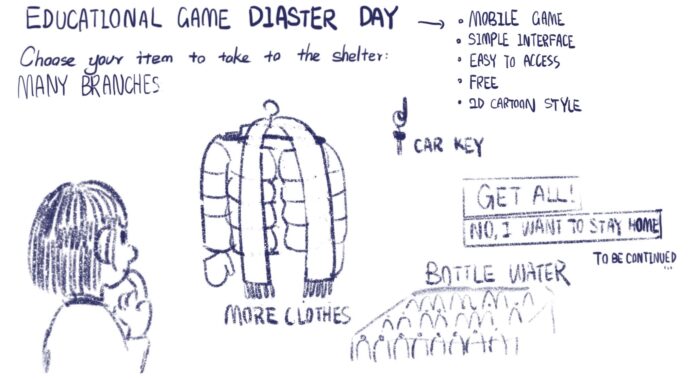 EDUCATIONAL GAME DIASTER DAY
• MOBILE GAME
• SIMPLE INTERFACE
• EASY TO ACCESS
• FREE
• 2D CARTOON STYLE
Choose your item to take to the shelter:
MANY BRANCHES
CAR KEY
GET ALL!
NO, I WANT TO STAY HOME
TO BE CONTINUED
...
BOTTLE WATER
MORE CLOTHES